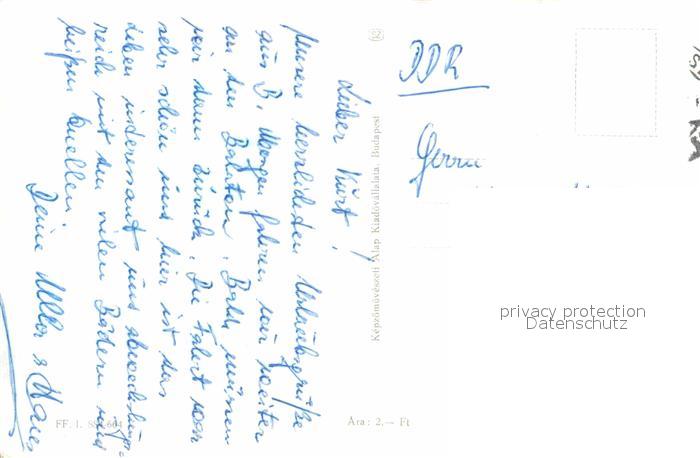 Lieber Kurt!
Unsere herzlichsten Urlaubsgrüße
aus B. Morgen fahren wir weiter
an den Balaton. Bald müssen
wir dann zurück. Die Fahrt war
sehr schön und hier ist das
Leben interessant und abwechslungs-
reich mit den vielen Bädern und
heißen Quellen
Deine Ulla & Hans
Képzőművészeti Alap Kiadóvállalata, Budapest
DDR
Herrn
privacy protection
Datenschutz
FF. I.
Ára: 2,— Ft